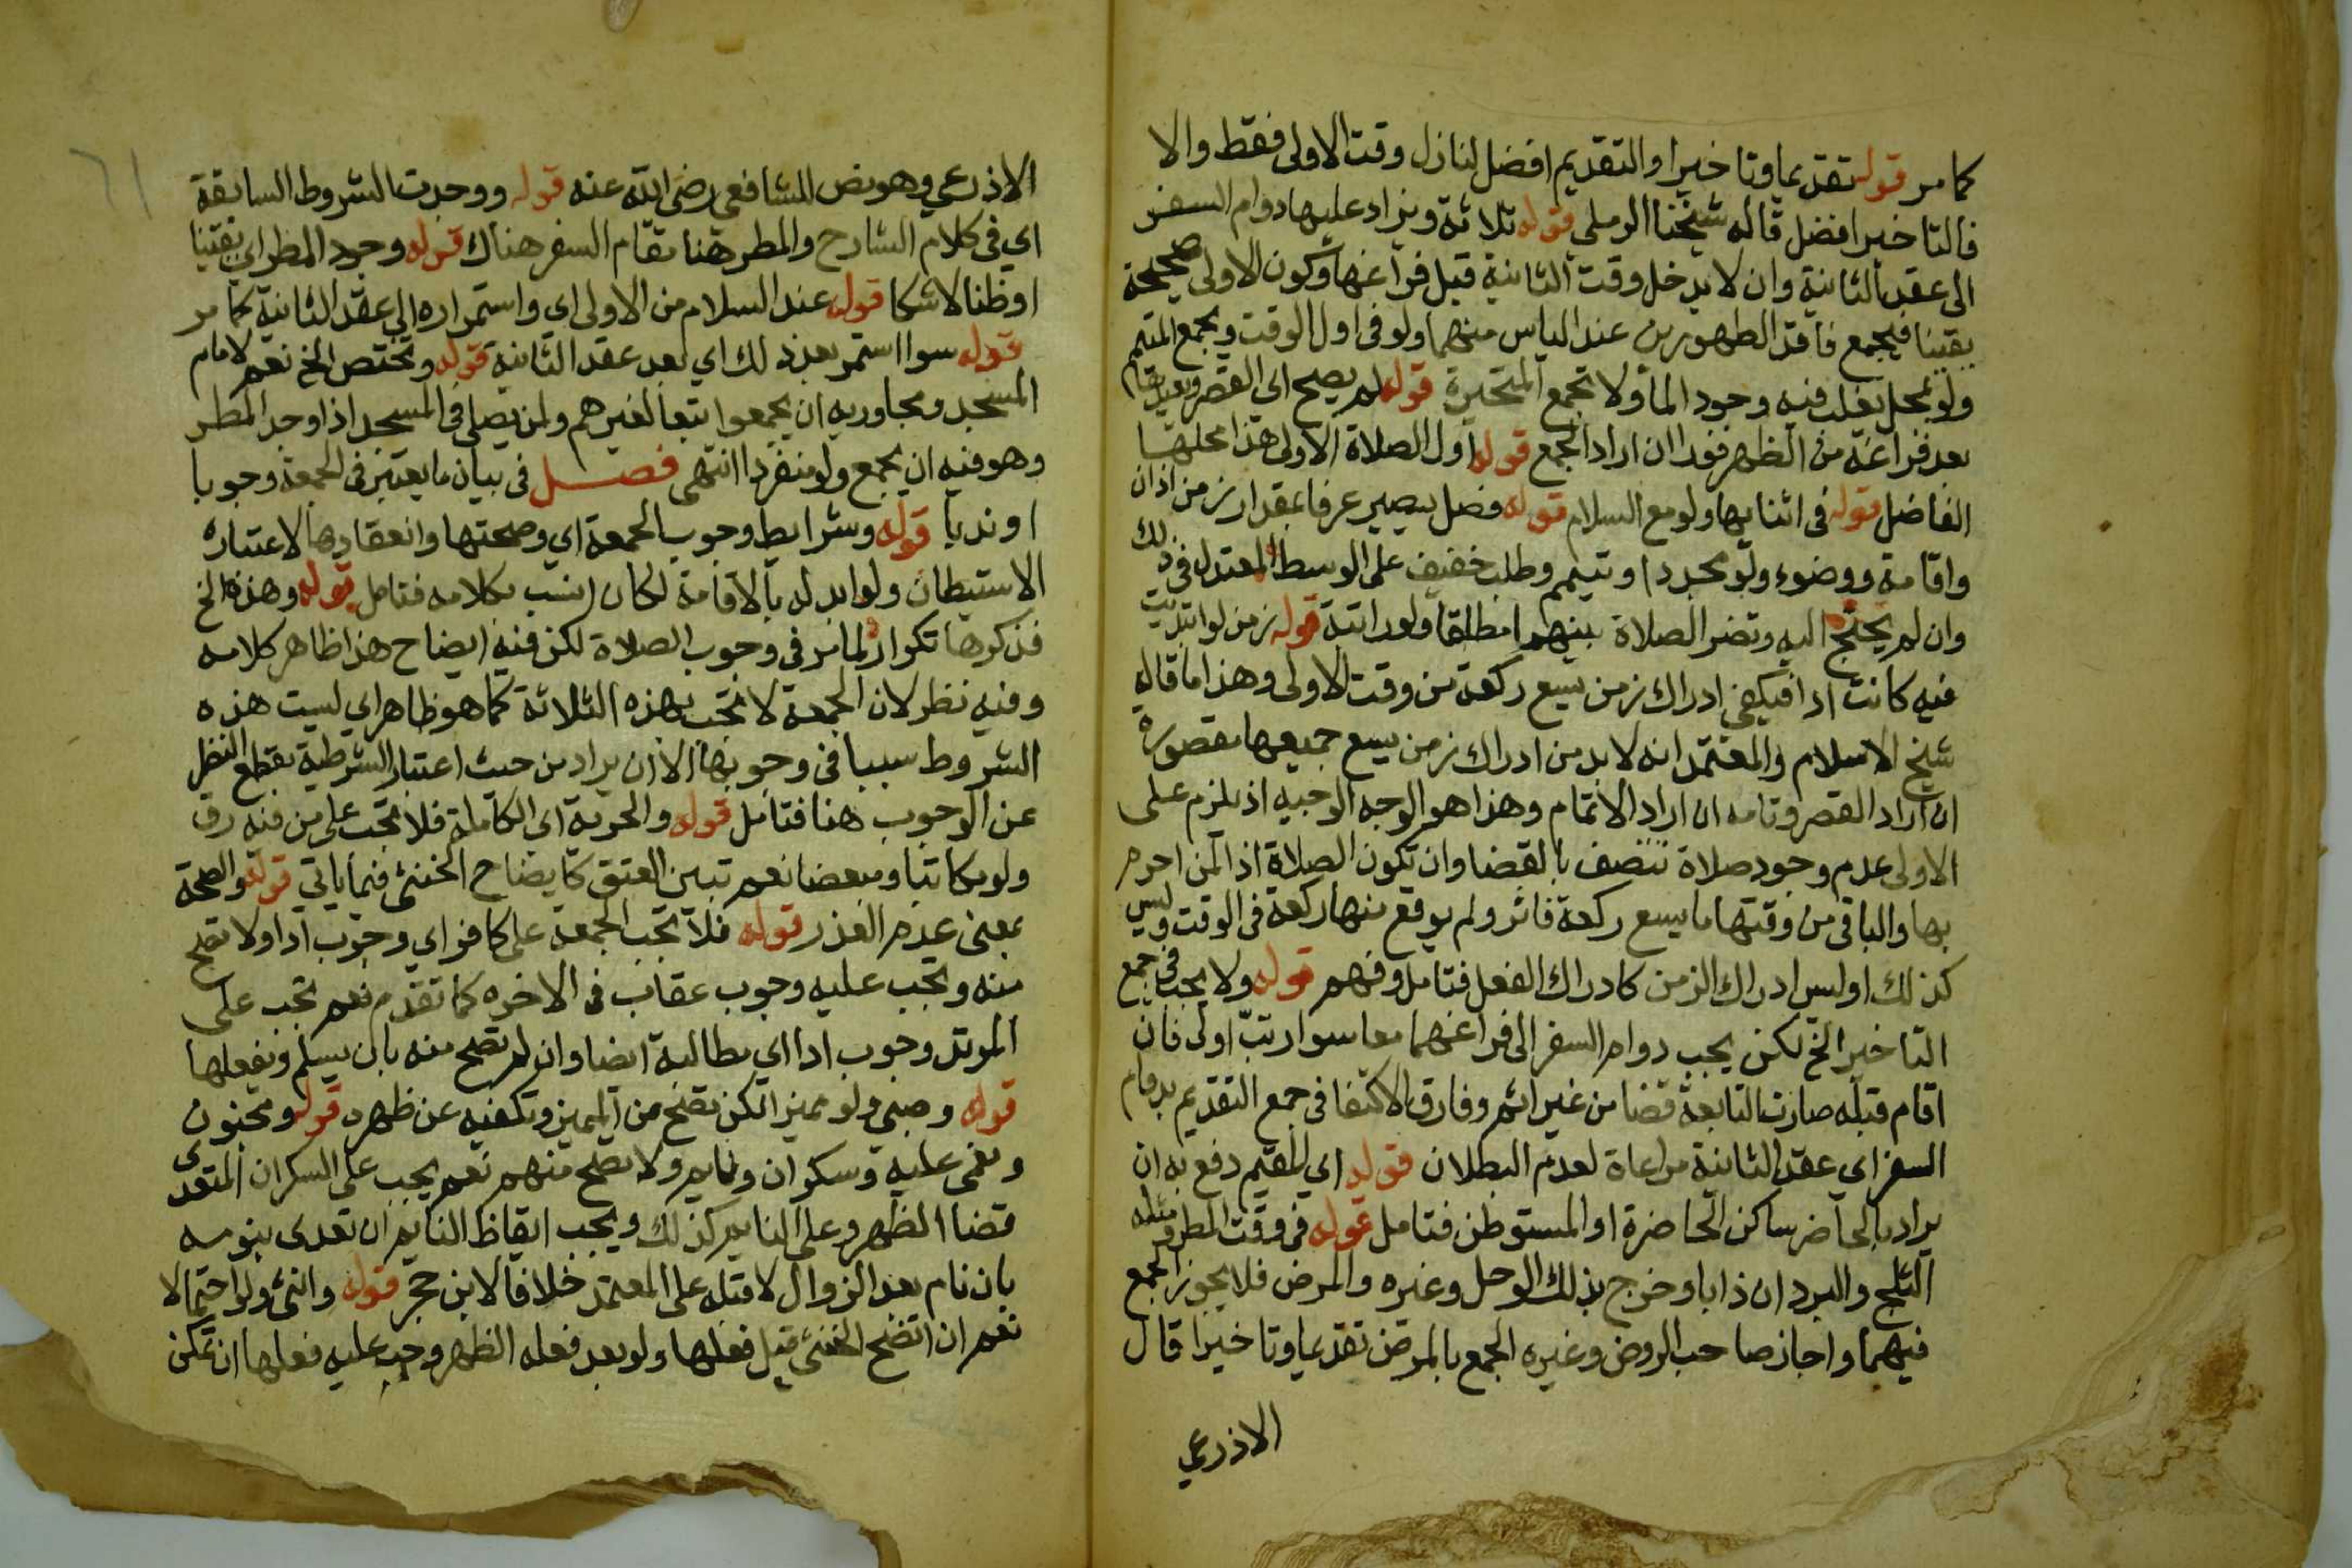 كما مر قوله تقديما وتاخيرا والتقديم افضل لنازل وقت الاولى فقط والا
فالتاخير افضل قاله شيخنا الرملي قوله ثلاثة ويزاد عليها دوام السفر
الى عقد الثانية وان لا يدخل وقت الثانية قبل فراغها وكون الاولى صحيحة
يقينا فيجمع فاقد الطهورين عند الياس منهما ولو في اول الوقت ويجمع المتيمم
ولو بمحل يغلب فيه وجود الما ولا تجمع المتحيرة قوله لم يصح اى القصر
بعد فراغه من الظهر فورا ان اراد الجمع قوله اول الصلاة الاولى هذا محلها
الفاضل قوله في اثنايها ولو مع السلام قوله فصل يسير عرفا بمقدار زمن اذان
واقامة ووضوء ولو مجددا وتيمم وطلب خفيف على الوسط المعتدل في ذلك
وان لم يحتج اليه وتضر الصلاة بينهما مطلقا ولو راتبة قوله زمن لو ابتديت
فيه كانت ادا فيكفي ادراك زمن يسع ركعة من وقت الاولى وهذا ما قاله
شيخ الاسلام والمعتمد انه لا بد من ادراك زمن يسع جميعها مقصورة
ان اراد القصر وتامه ان اراد الاتمام وهذا هو الوجه الوجيه اذ يلزم على
الاولى عدم وجود صلاة تتصف بالقضا وان تكون الصلاة اذ المن احرم
بها والباقي من وقتها ما يسع ركعة فاكثر ولم يوقع منها ركعة في الوقت وليس
كذلك اوليس ادراك الزمن كادراك الفعل فتامل وفهم قوله ولا يجب في جمع
التاخير الخ لكن يجب دوام السفر الى فراغهما معا سوا رتب اولى فان
اقام قبله صارت التابعة قضا من غير اثم وفارق الاكتفا في جمع التقديم بدوام
السفر اي عقد الثانية مراعاة لعدم البطلان قوله اي للمقيم دفع به ان
يراد بالحاضر ساكن الحاضرة او المستوطن فتامل قوله في وقت المطر ومثله
الثلج والبرد ان ذابا وخرج بذلك الوحل وغيره والمرض فلا يجوز الجمع
فيهما واجاز صاحب الروض وغيره الجمع بالمرض تقديما وتاخيرا قال
الاذرعي
٦١
الاذرعي وهو نص الشافعي رضي الله عنه قوله ووجدت الشروط السابقة
اي في كلام الشارح والمطر هنا مقام السفر هناك قوله وجود المطر اي يقينا
او ظنا لا شكا قوله عند السلام من الاولى اى واستمراره الى عقد الثانية كما مر
قوله سوا استمر بعد ذلك اي بعد عقد الثانية قوله وتختص الخ نعم لامام
المسجد ومجاوريه ان يجمعوا تبعا لغيرهم ولمن يصلي في المسجد اذا وجد المطر
وهو فيه ان يجمع ولو منفردا انتهى فصل في بيان ما يعتبر في الجمعة وجوبا
او ندبا قوله وشرايط وجوب الجمعة اي وصحتها وانعقادها لاعتباره
الاستيطان ولو ابدله بالاقامة لكان انسب بكلامه فتامل قوله وهذه الخ
فذكرها تكرار لما مر في وجوب الصلاة لكن فيه ايضاح هذا ظاهر كلامه
وفيه نظر لان الجمعة لا تجب بهذه الثلاثة كما هو ظاهر اي ليست هذه
الشروط سببا في وجوبها الا ان يراد من حيث اعتبار الشرطية بقطع النظر
عن الوجوب هنا فتامل قوله والحرية اى الكاملة فلا تجب على من فيه رق
ولو مكاتبا ومبعضا نعم تبين العتق كايضاح الخنثى فيما ياتي قوله والصحة
بمعنى عدم العذر قوله فلا تجب الجمعة على كافر اي وجوب ادا ولا تصح
منه ويجب عليه وجوب عقاب في الاخره كما تقدم نعم تجب على
المرتد وجوب ادا اي مطالبة ايضا وان لم تصح منه بان يسلم ويفعلها
قوله وصبي ولو مميزا لكن تصح من المميز وتكفيه عن ظهره قوله ومجنون
ومغمى عليه وسكران ونايم ولا يصح منهم نعم يجب على السكران المتعدى
قضا الظهر وعلى النايم كذلك ويجب ايقاظ النايم ان تعدى بنومه
بان نام بعد الزوال لا قبله على المعتمد خلافا لابن حجر قوله وانثى ولو احتمالا
نعم ان اتضح الخنثى قبل فعلها ولو بعد فعله الظهر وجب عليه فعلها ان تمكن